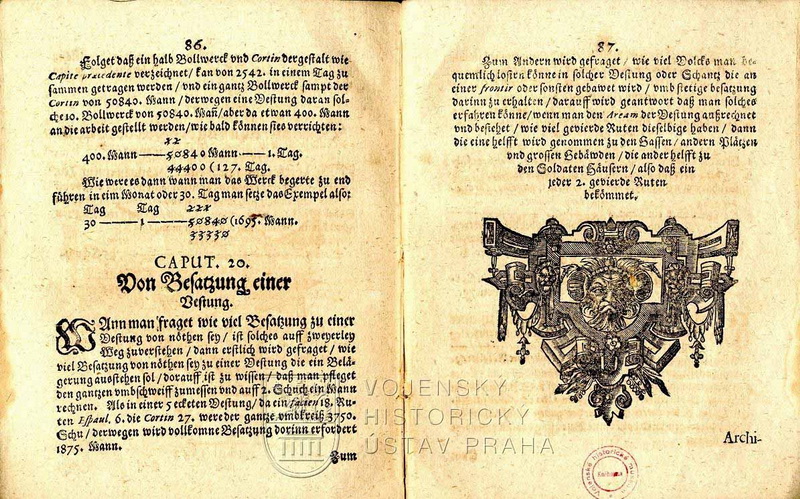 86.
Folget daß ein halb Bollwerck vnd Cortin dergestalt wie
Capite præcedente verzeichnet / kan von 2542. in einem Tag zu
sammen getragen werden / vnd ein gantz Bollwerck sampt der
Cortin von 50840. Mann / derwegen eine Vestung daran sol-
che 10. Bollwerck von 50840. Mañ / aber da etwan 400. Mann
an die arbeit gestellt werden / wie bald können sies verrichten:
400. Mann — 50840 Mann — 1. Tag.
44400 (127. Tag.
Wie were es dann wann man das Werck begerte zu end
führen in eim Monat oder 30. Tag man setze das Exempel also:
Tag Tag
30 — 1 — 50840 (1695. Mann.
33330
CAPUT. 20.
Von Besatzung einer
Vestung.
WAnn man fraget wie viel Besatzung zu einer
Vestung von nöthen sey / ist solches auff zweyerley
Weg zuverstehen / dann erstlich wird gefraget / wie
viel Besatzung von nöthen sey zu einer Vestung die ein Belä-
gerung ausstehen sol / dorauff ist zu wissen / daß man pfleget
den gantzen vmbschweiff zumessen vnd auff 2. Schuch ein Mann
rechnen. Als in einer 5 ecketen Vestung / da ein facien 18. Ru-
ten Espaul, 6. die Cortin 27. were der gantze vmbkreiß 3750.
Schu / derwegen wird vollkomne Besatzung dorinn erfordert
1875. Mann.
Zum
87.
Zum Andern wird gefraget / wie viel Volcks man be-
quemlich losirn könne in solcher Vestung oder Schantz die an
einer frontir oder sonsten gebawet wird / vmb stetige besatzung
darinn zu erhalten / darauff wird geantwort daß man solches
erfahren könne / wenn man den Aream der Vestung außrechnet
vnd besiehet / wie viel gevierde Ruten dieselbige haben / dann
die eine helfft wird genommen zu den Gassen / andern Plätzen
vnd grossen Gebäwden / die ander helfft zu
den Soldaten Häusern / also daß ein
jeder 2. gevierde Ruten
bekömmet.
Archi-
VOJENSKÝ
HISTORICKÝ
ÚSTAV PRAHA